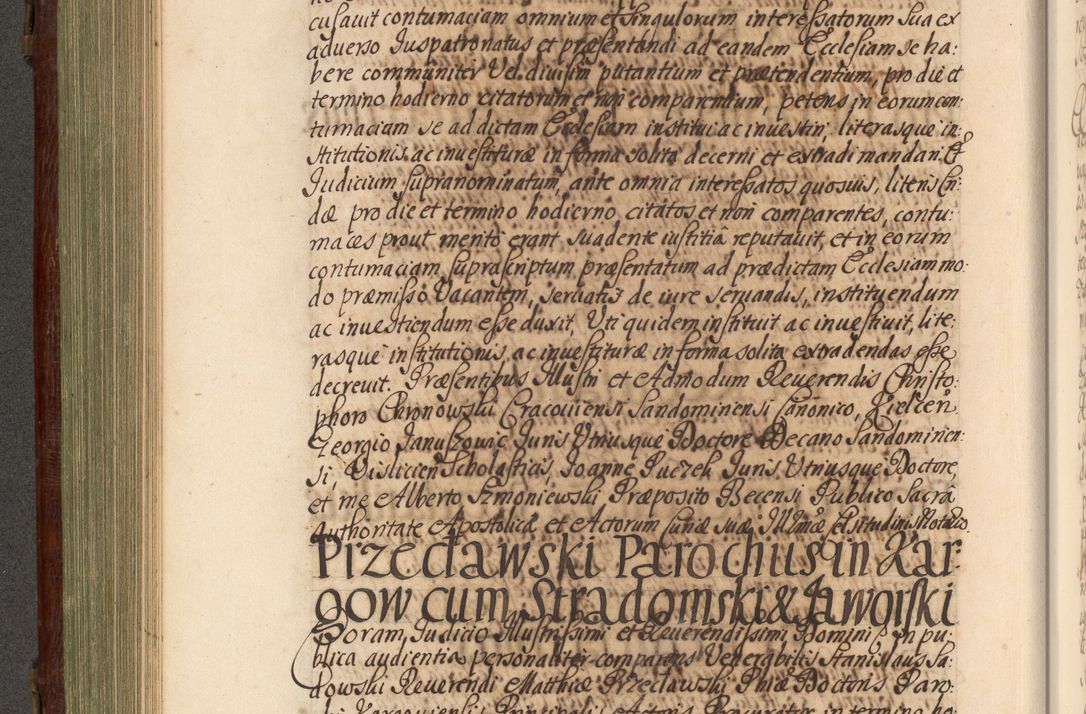 cusavit contumaciam omnium et singulorum interessatorum sua ex
adverso Juspatronatus et præsentandi ad eandem Ecclesiam se ha:
bere communiter Vel divisim putantium et prætendentium, pro die et
termino hodierno citatorum et non comparentium, petens in eorum con:
tumaciam se ad dictam Ecclesiam institui ac investiri, literasque in:
stitutionis ac investituræ in forma solita decerni et extradi mandari. Et
Judicium supranominatum, ante omnia interessatos quosvis, literis In:
dæ pro die et termino hodierno citatos et non comparentes, contu:
maces prout merito erant suadente iustitiâ reputavit, et in eorum
contumaciam suprascriptum præsentatum ad prædictam Ecclesiam mo:
do præmisso Vacantem, servatis de iure servandis, instituendum
ac investiendum esse duxit, Uti quidem instituit ac investivit, lite:
rasque institutionis ac investituræ in forma solita extradendas esse
decrevit. Præsentibus Illustri et Admodum Reverendis Christo:
phoro Chronowski Cracoviensi Sandominensi Canonico, Kielcen
Georgio Januszowic Juris Utriusque Doctore Decano Sandominien:
si, Visliciens Scholasticis, Joanne Puczek Juris Utriusque Doctore,
et me Alberto Szmoniewski Præposito Becensi Publico Sacrâ
Authoritate Apostolicâ et Actorum Curiæ suæ Illmæ Celsitudinis Notario.
Przecławski Parochus in Kar:
gow cum Stradomski & Jaworski
Coram Judicio Illustrissimi et Reverendissimi Domini, in pu:
blica audientia personaliter comparens Venerabilis Stanislaus Sa:
dowski Reverendi Matthiæ Przecławski Phiæ Doctoris Paro:
chi Kargoviensis Principalis Actoris Procurator in termino ho: